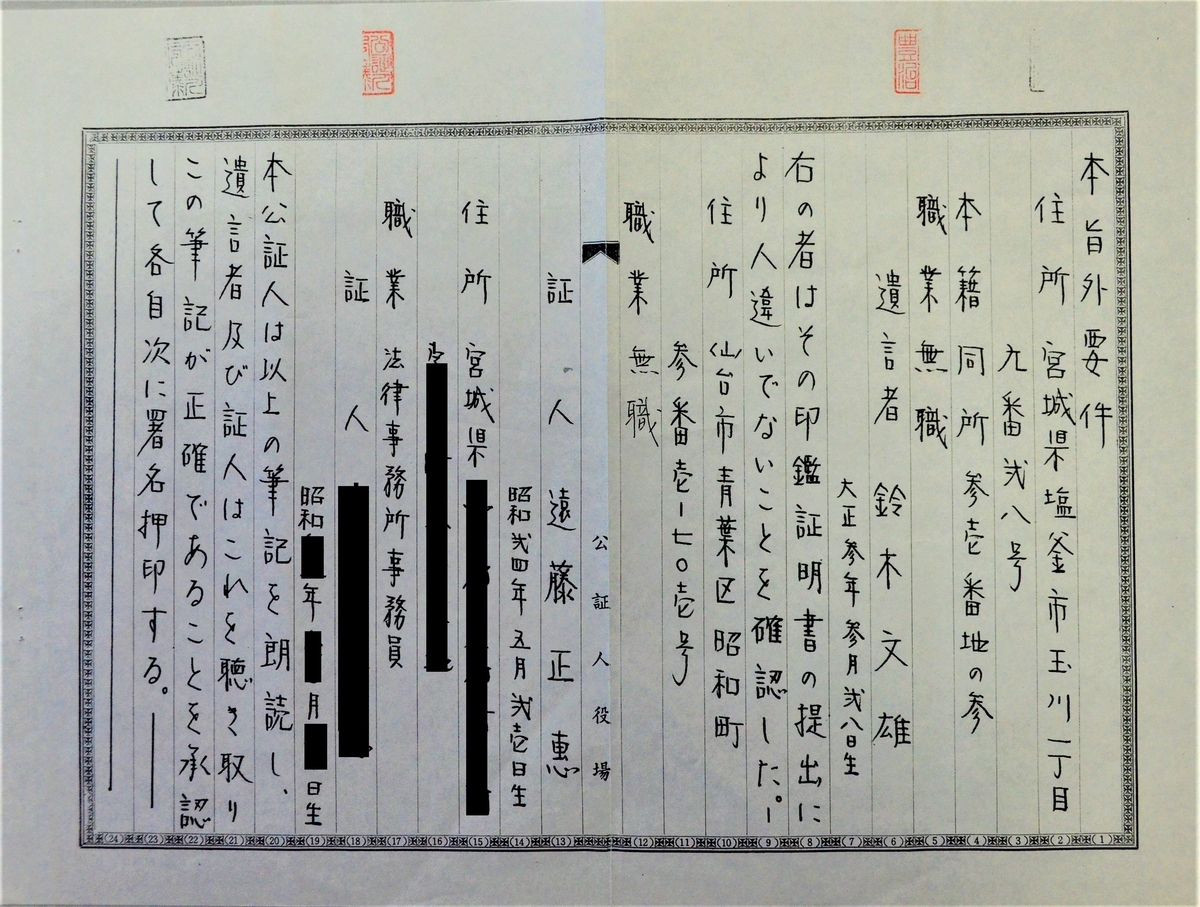 本旨外要件
住所 宮城県塩釜市玉川一丁目
九番弐八号
本籍 同所 参壱番地の参
職業 無職
遺言者 鈴木文雄
大正参年参月弐八日生
右の者はその印鑑証明書の提出に
より人違いでないことを確認した。
住所 仙台市青葉区昭和町
参番壱ー七〇壱号
職業 無職
公証人役場
証人 遠藤正惠
昭和弐四年五月弐壱日生
住所 宮城県
職業 法律事務所事務員
証人
昭和 年 月 日生
本公証人は以上の筆記を朗読し、
遺言者及び証人はこれを聴き取り
この筆記が正確であることを承認
して各自次に署名押印する。
(24) (23) (22) (21) (20) (19) (18) (17) (16) (15) (14) (13) (12) (11) (10) (9) (8) (7) (6) (5) (4) (3) (2) (1)